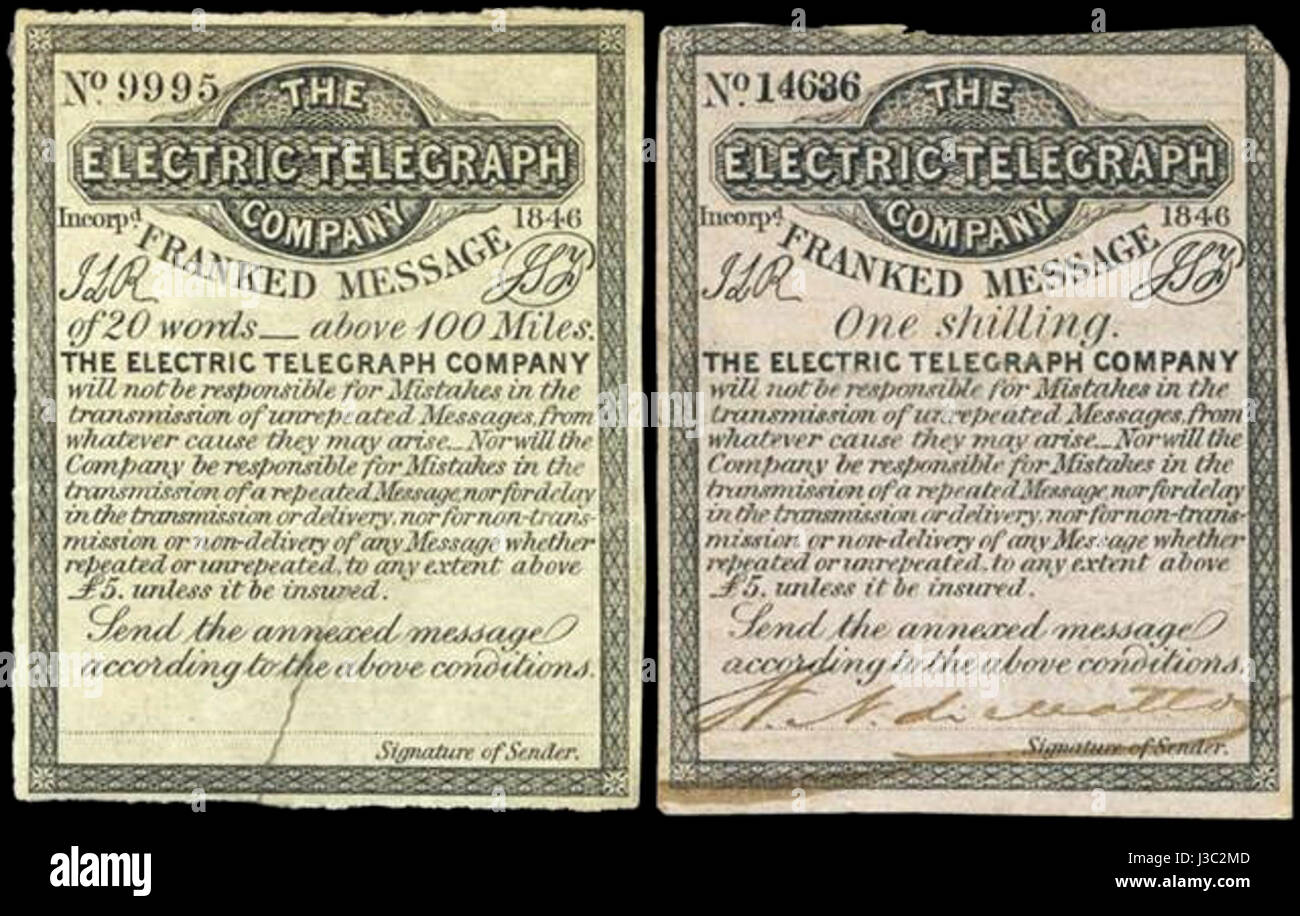 No. 9995
THE
ELECTRIC TELEGRAPH
COMPANY
Incorpd. 1846
FRANKED MESSAGE
JLR
of 20 words — above 100 Miles.
THE ELECTRIC TELEGRAPH COMPANY
will not be responsible for Mistakes in the
transmission of unrepeated Messages, from
whatever cause they may arise — Nor will the
Company be responsible for Mistakes in the
transmission of a repeated Message, nor for delay
in the transmission or delivery, nor for non-trans-
mission or non-delivery of any Message, whether
repeated or unrepeated, to any extent above
£5. unless it be insured.
Send the annexed message
according to the above conditions.
Signature of Sender.
No. 14636
THE
ELECTRIC TELEGRAPH
COMPANY
Incorpd. 1846
FRANKED MESSAGE
JLR
One shilling.
THE ELECTRIC TELEGRAPH COMPANY
will not be responsible for Mistakes in the
transmission of unrepeated Messages, from
whatever cause they may arise — Nor will the
Company be responsible for Mistakes in the
transmission of a repeated Message, nor for delay
in the transmission or delivery, nor for non-trans-
mission or non-delivery of any Message, whether
repeated or unrepeated, to any extent above
£5. unless it be insured.
Send the annexed message
according to the above conditions.
Signature of Sender.
alamy stock photo
J3C2MD
www.alamy.com